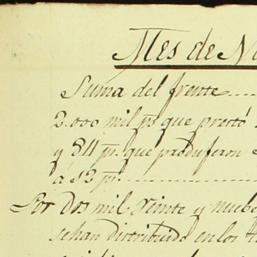 Mes de N
Suma del frente....
2.000 mil p.s que prestó
y 811 p.s que produjeron
a 12 p.s
Por dos mil veinte y nueb
se han distribuido en los